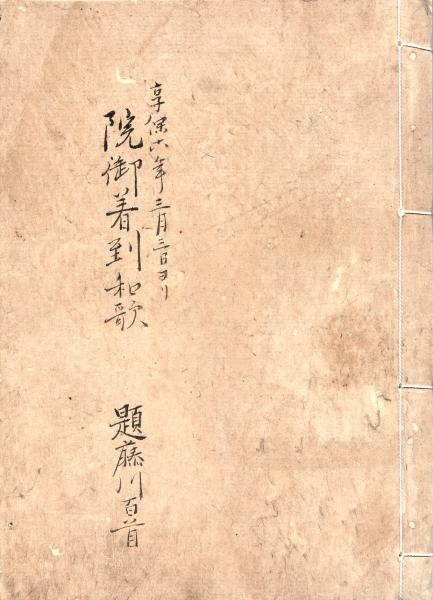 享保六年三月三日ヨリ
院御着到和歌
題藤川百首